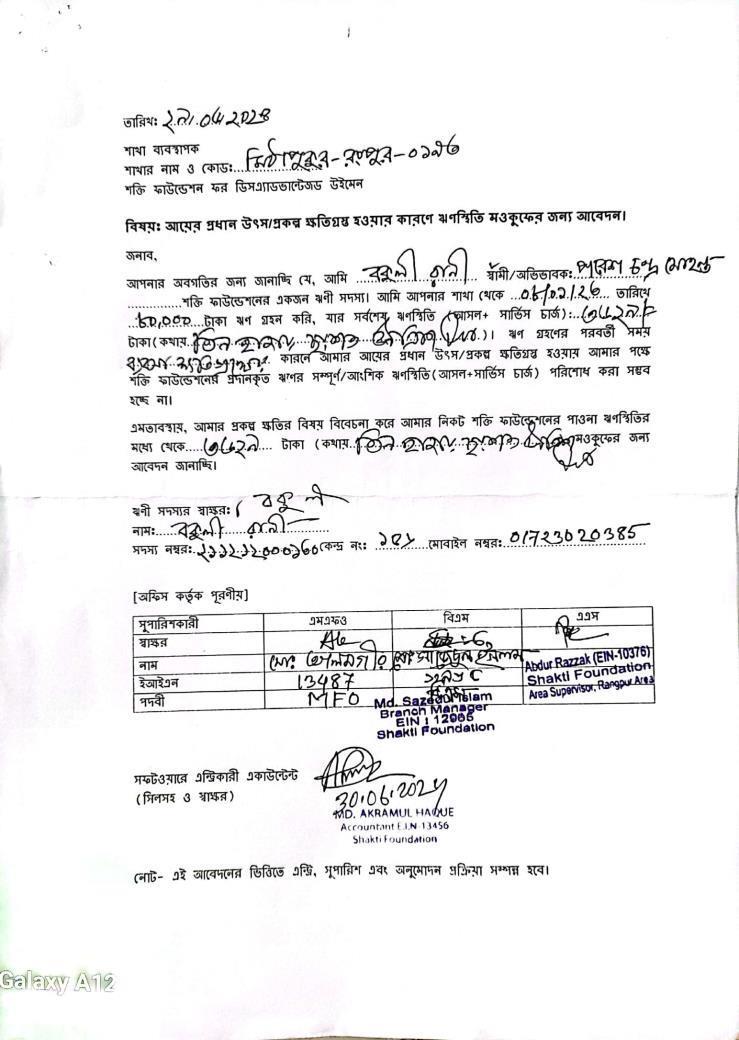 তারিখ:
শাখা ব্যবস্থাপক
শাখার নাম ও কোড: মিঠাপুকুর-রংপুর-০১৯৩
শক্তি ফাউন্ডেশন ফর ডিসএ্যাডভান্টেজড উইমেন
বিষয়: আয়ের প্রধান উৎস/প্রকল্প ক্ষতিগ্রস্ত হওয়ার কারণে ঋণস্থিতি মওকুফের জন্য আবেদন।
জনাব,
আপনার অবগতির জন্য জানাচ্ছি যে, আমি বকুলী রানী স্বামী/অভিভাবক: পরেশ চন্দ্র মোহন্ত
শক্তি ফাউন্ডেশনের একজন ঋণী সদস্য। আমি আপনার শাখা থেকে তারিখে
টাকা ঋণ গ্রহন করি, যার সর্বশেষ ঋণস্থিতি (আসল+ সার্ভিস চার্জ):
টাকা (কথায় তিন হাজার দুইশত )। ঋণ গ্রহণের পরবর্তী সময়
কারনে আমার আয়ের প্রধান উৎস/প্রকল্প ক্ষতিগ্রস্ত হওয়ায় আমার পক্ষে
শক্তি ফাউন্ডেশনের প্রদানকৃত ঋণের সম্পূর্ণ/আংশিক ঋণস্থিতি(আসল+সার্ভিস চার্জ) পরিশোধ করা সম্ভব
হচ্ছে না।
এমতাবস্থায়, আমার প্রকল্প ক্ষতির বিষয় বিবেচনা করে আমার নিকট শক্তি ফাউন্ডেশনের পাওনা ঋণস্থিতির
মধ্যে থেকে টাকা (কথায় তিন হাজার দুইশত মওকুফের জন্য
আবেদন জানাচ্ছি।
ঋণী সদস্যর স্বাক্ষর: বকুলী
নাম: বকুলী রানী
সদস্য নম্বর: কেন্দ্র নং: মোবাইল নম্বর: 01723020385
[অফিস কর্তৃক পূরণীয়]
সুপারিশকারী এমএফও বিএম এএস
স্বাক্ষর
নাম মোঃ আলমগীর মোঃ সাজেদুল ইসলাম Abdur Razzak (EIN-10376)
ইআইএন 13487 Shakti Foundation
পদবী MFO Area Supervisor, Rangpur Area
Md. Sazedul Islam
Branch Manager
EIN : 12966
Shakti Foundation
সফটওয়ারে এন্ট্রিকারী একাউন্টেন্ট
(সিলসহ ও স্বাক্ষর)
30.06.2024
MD. AKRAMUL HAQUE
Accountant E.I.N 13456
Shakti Foundation
নোট- এই আবেদনের ভিত্তিতে এন্ট্রি, সুপারিশ এবং অনুমোদন প্রক্রিয়া সম্পন্ন হবে।
Galaxy A12